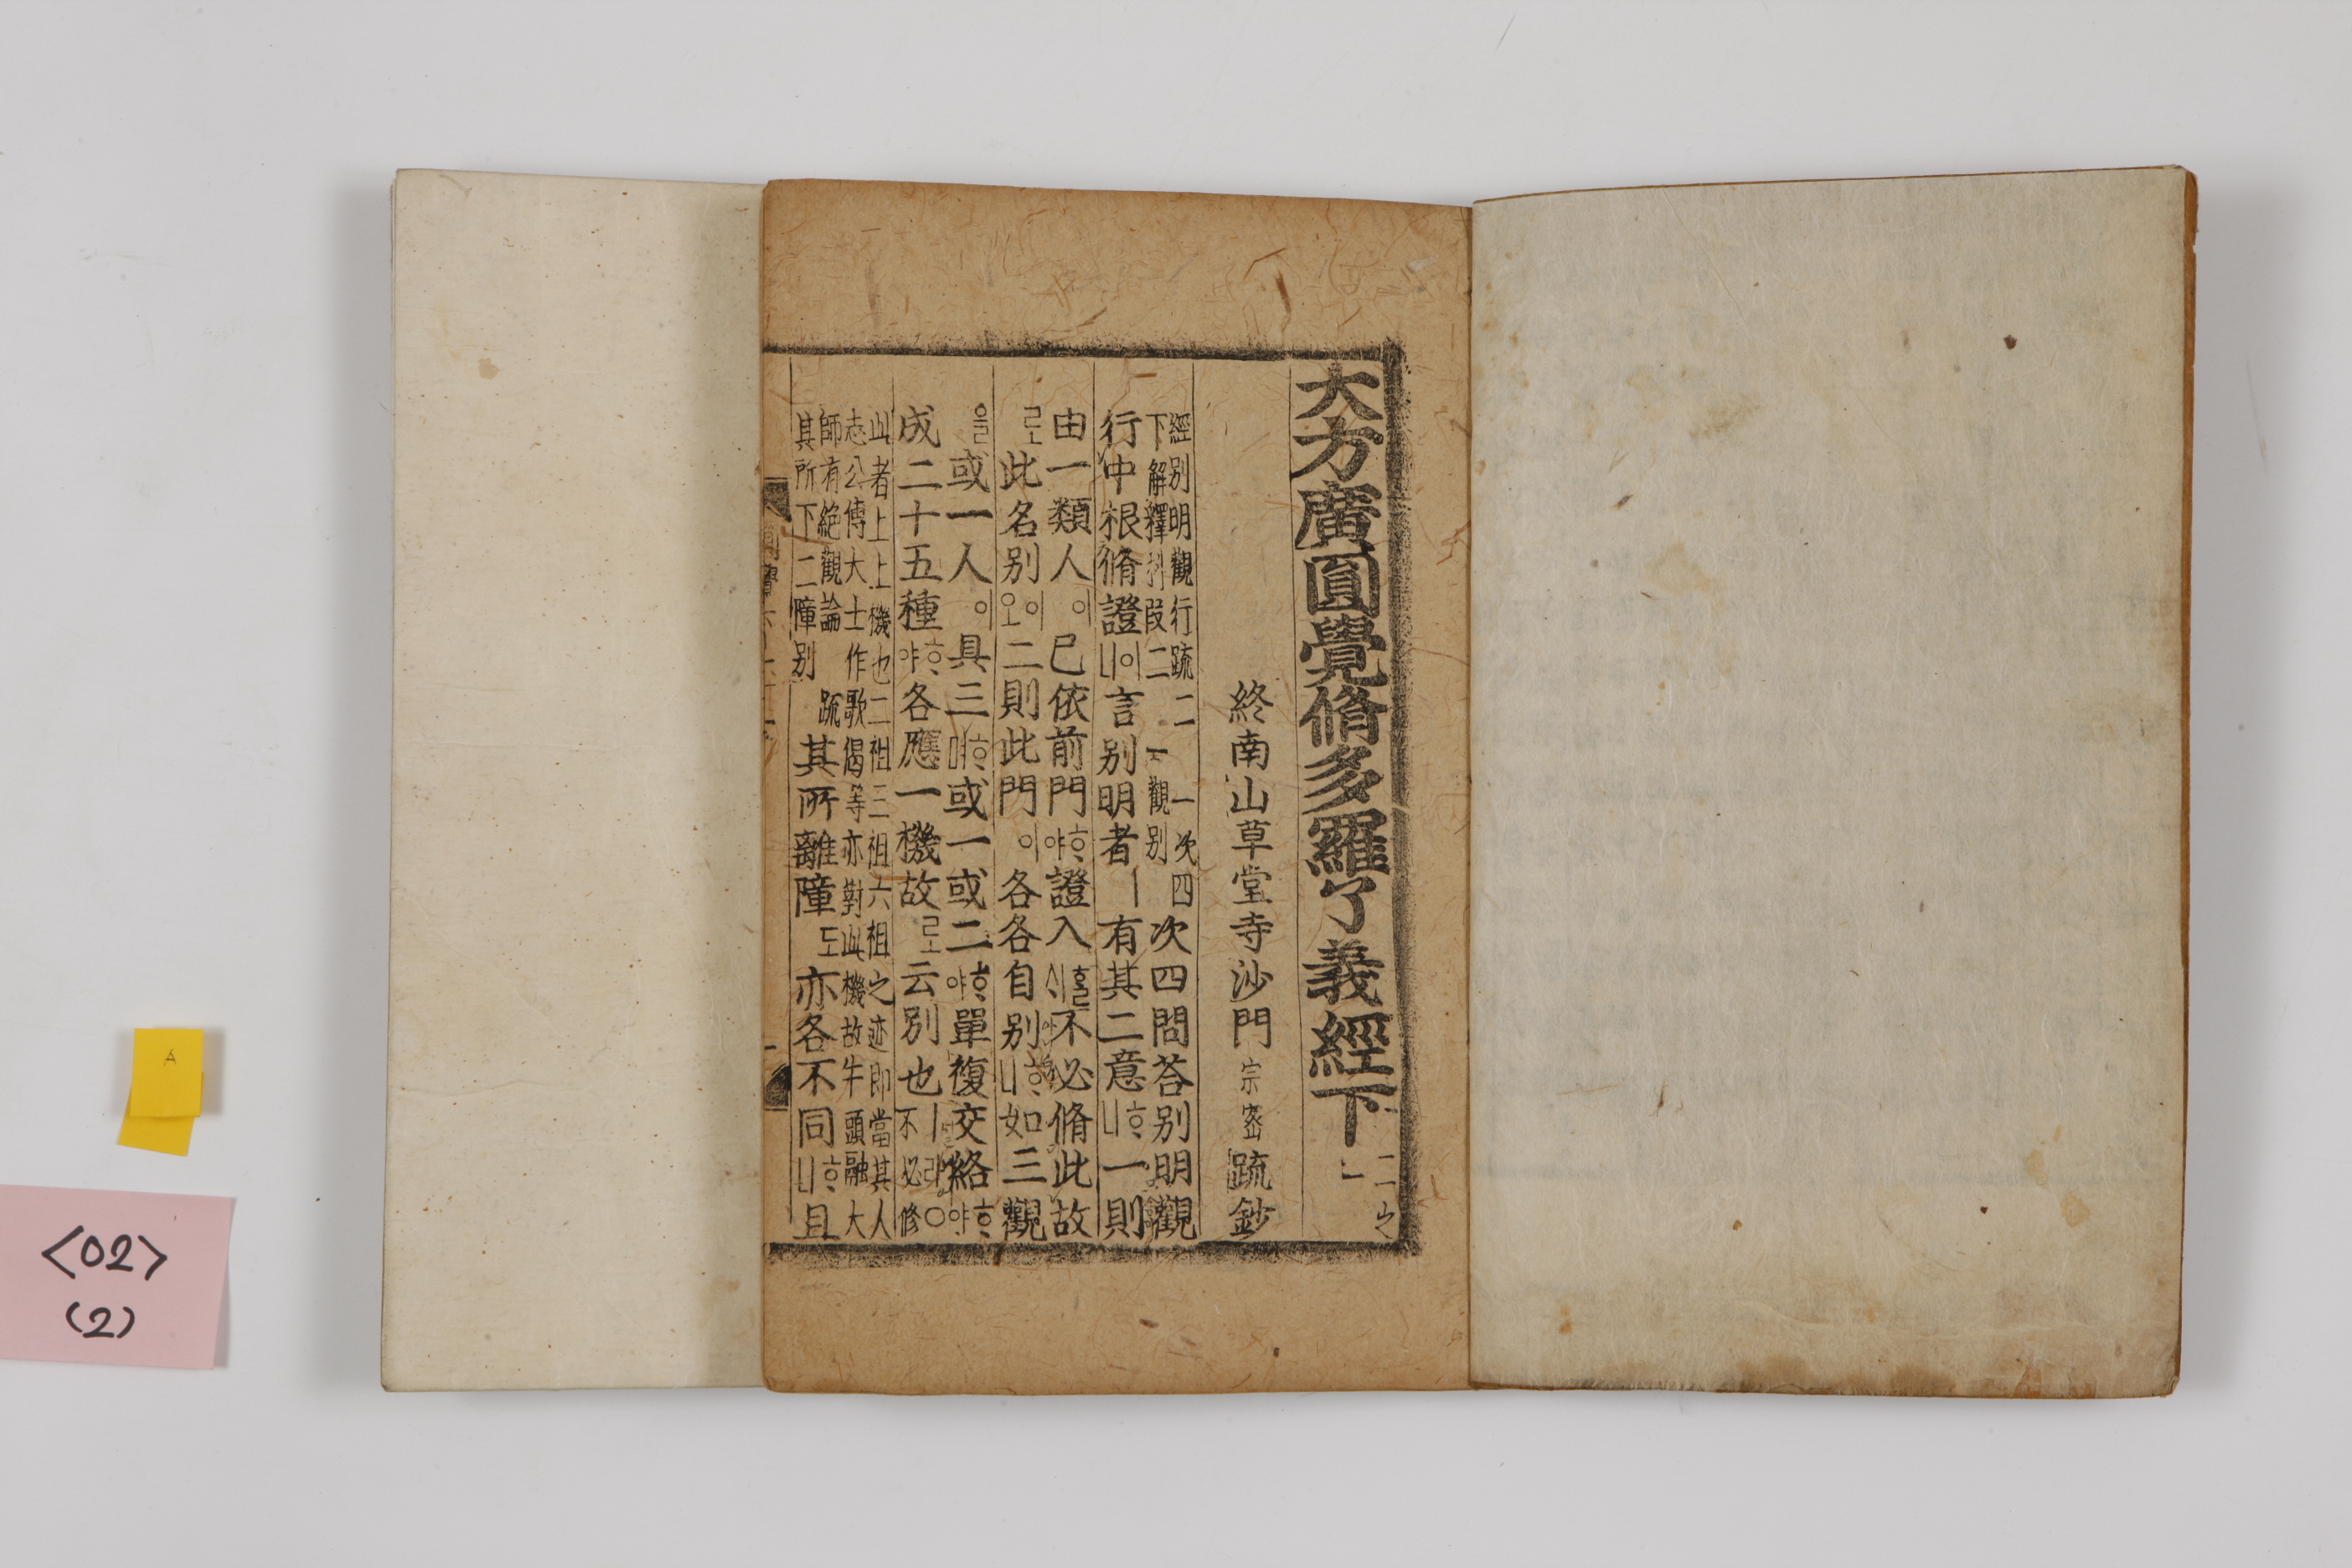 大方廣圓覺脩多羅了義經下 二之一
終南山草堂寺沙門 宗密 䟽鈔
經别明觀行䟽二 一次四
下解釋科段二 二觀别
次四問荅别明觀
行中根脩證이니言别明者ㅣ有其二意ᄒᆞ니一則
由一類人이已依前門ᄒᆞ야證入ᄒᆞᆯᄉᆡ不必脩此故
로此名别이오二則此門이各各自别ᄒᆞ니如三觀
을或一人이具三ᄒᆞ며或一或二ᄒᆞ야單複交絡ᄒᆞ야
成二十五種ᄒᆞ야各應一機故로云别也ㅣ라○不必修
此者上上機也二祖三祖六祖之迹即當其人
志公傅大士作歌偈等亦對此機故牛頭融大
師有絶觀論 䟽
其所下二障别
其所離障도亦各不同ᄒᆞ니且
A
<02>
(2)